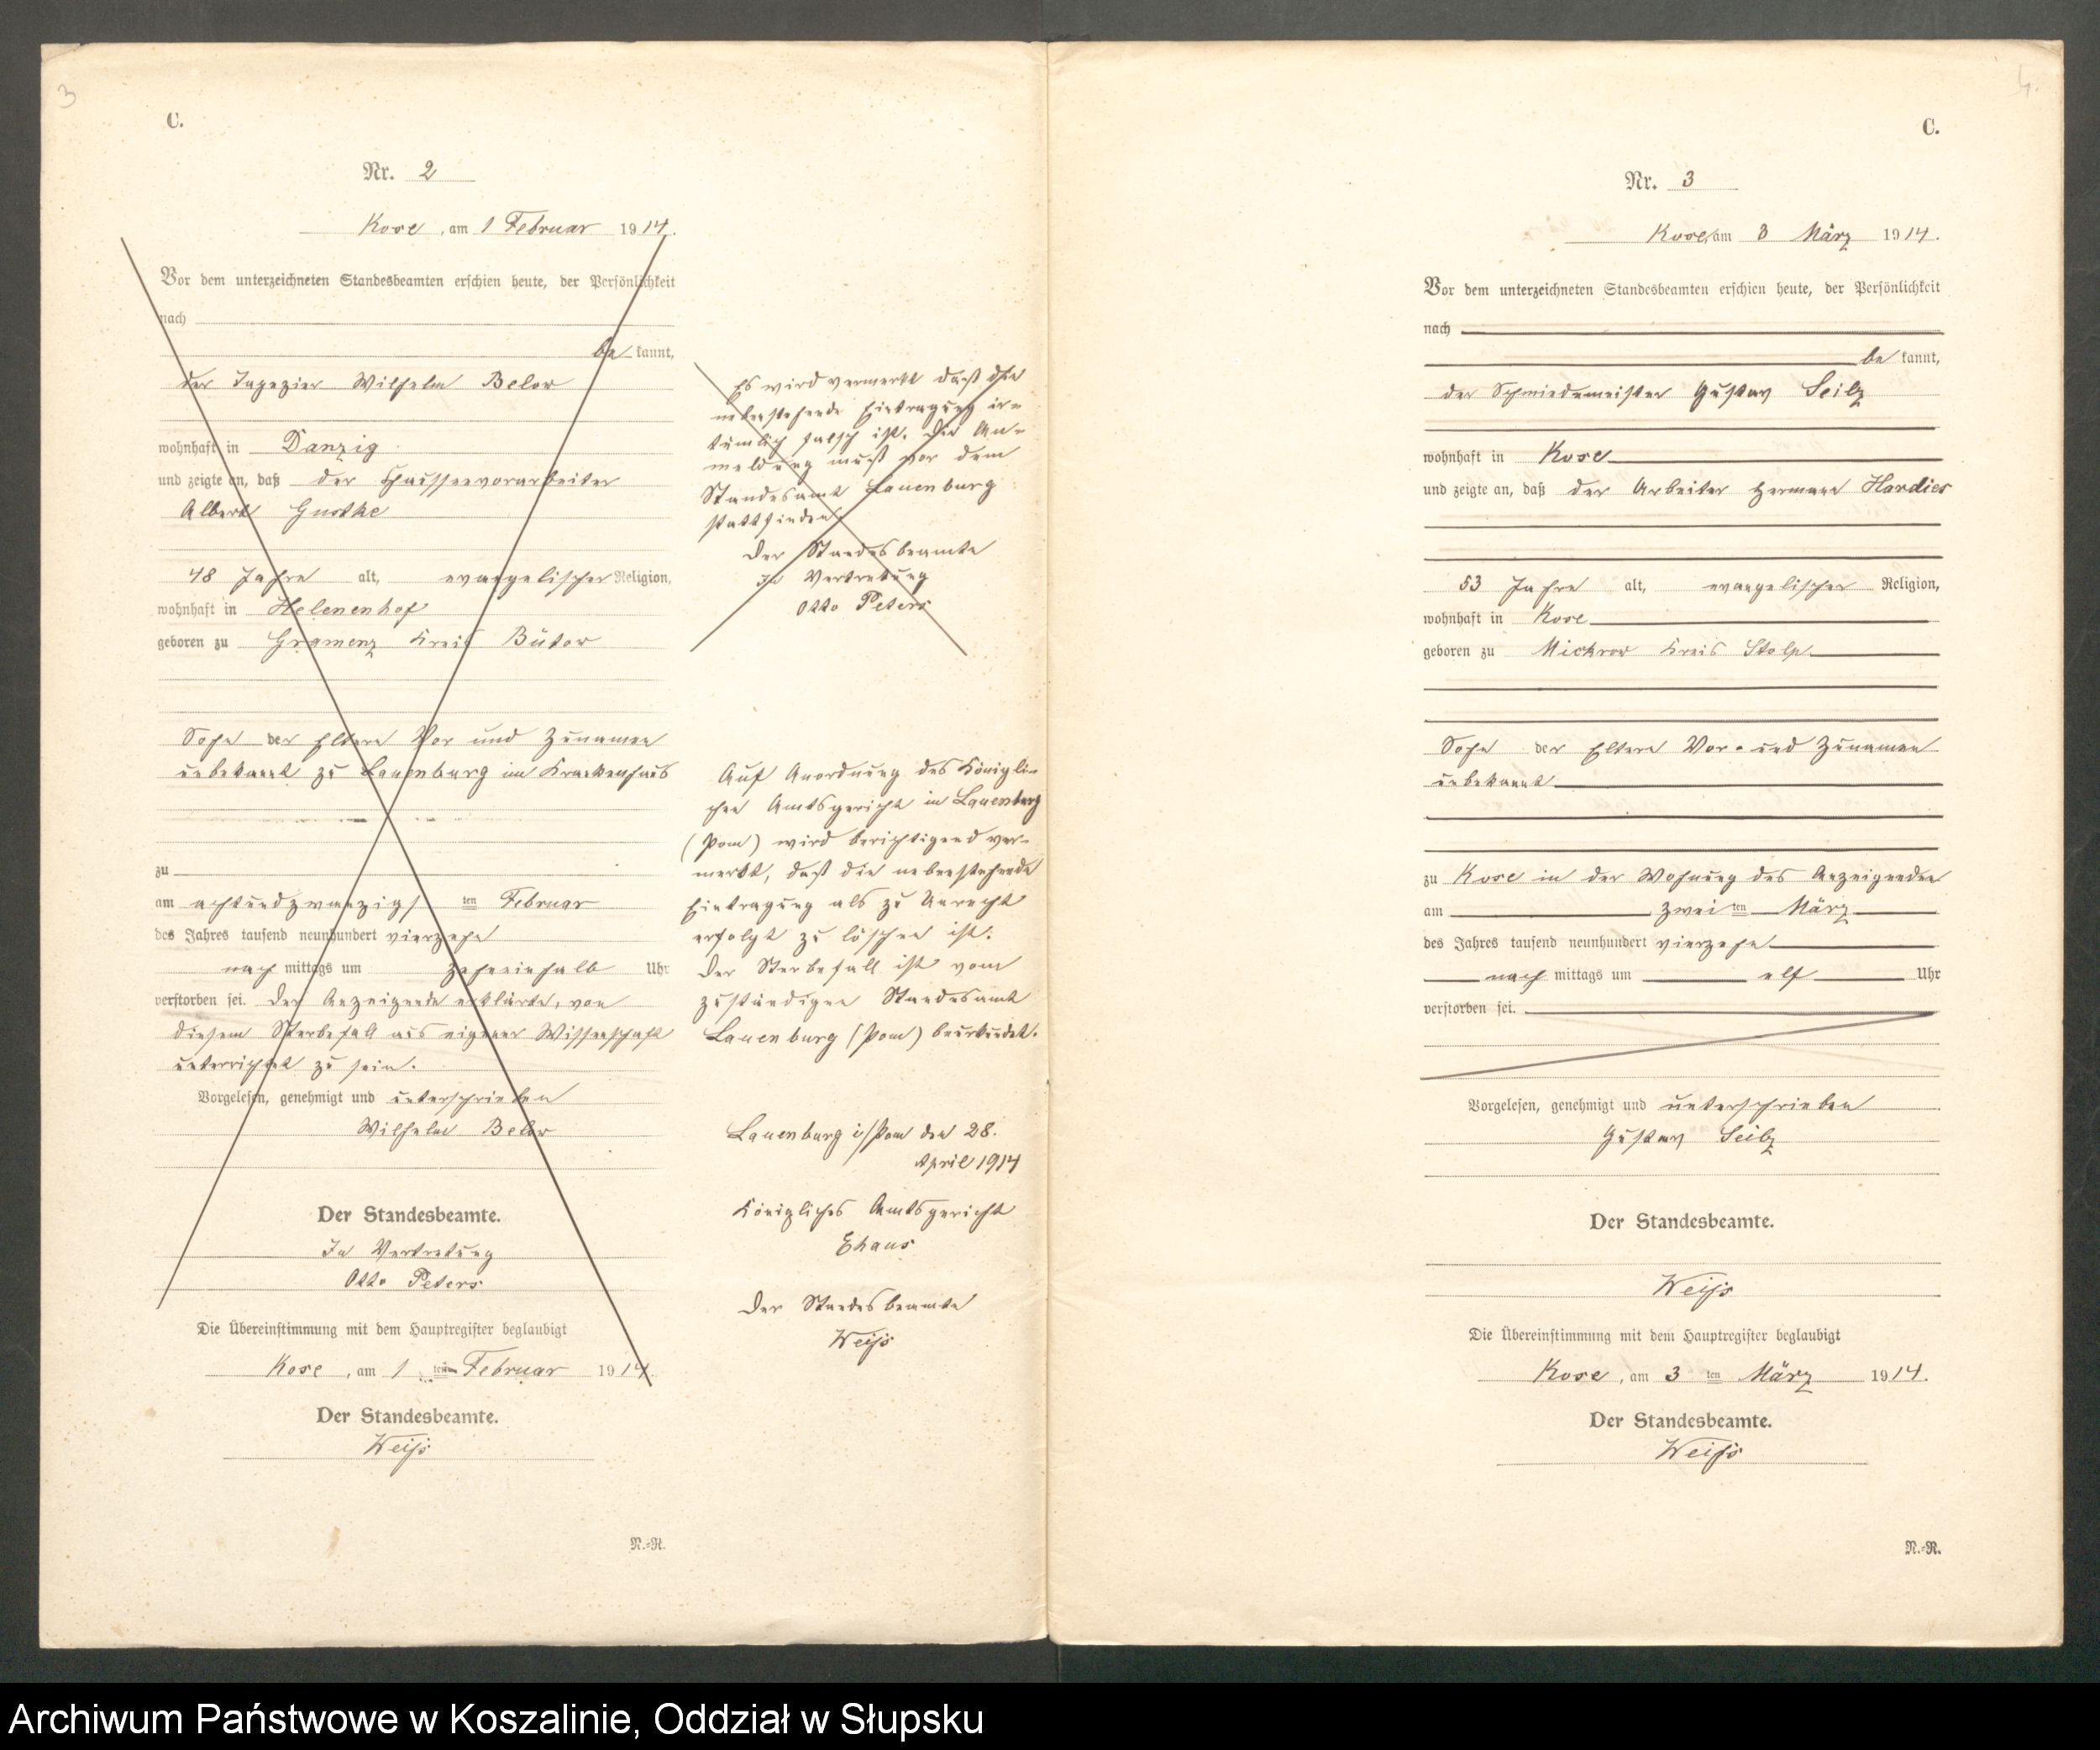 3
C.
Nr. 2
Kose, am 1 Februar 1914.
Vor dem unterzeichneten Standesbeamten erschien heute, der Persönlichkeit
nach
be kannt,
der Tapezier Wilhelm Below
wohnhaft in Danzig
und zeigte an, daß der Chausseevorarbeiter
Albert Gustke
48 Jahre alt, evangelischer Religion,
wohnhaft in Helenenhof
geboren zu Gramenz Kreis Bütow
Sohn der Eltern Vor und Zunamen
unbekannt zu Lauenburg im Krankenhaus
zu
am achtundzwanzigs ten Februar
des Jahres tausend neunhundert vierzehn
nach mittags um zehneinhalb Uhr
verstorben sei. Der Anzeigende erklärte, von
diesem Sterbefall aus eigener Wissenschaft
unterrichtet zu sein.
Vorgelesen, genehmigt und unterschrieben
Wilhelm Below
Der Standesbeamte.
In Vertretung
Otto Peters
Die Übereinstimmung mit dem Hauptregister beglaubigt
Kose, am 1 ten Februar 1914.
Der Standesbeamte.
Weiß
N.-R.
Es wird vermerkt daß die
nebenstehende Eintragung ir=
tümlich falsch ist. Die An=
meldung muß vor dem
Standesamt Lauenburg
stattfinden
Der Standesbeamte
In Vertretung
Otto Peters
Auf Anordnung des Königli=
chen Amtsgericht in Lauenburg
(Pom) wird berichtigend ver=
merkt, daß die nebenstehende
Eintragung als zu Unrecht
erfolgt zu löschen ist.
Der Sterbefall ist vom
zuständigen Standesamt
Lauenburg (Pom) beurkundet.
Lauenburg i/Pom den 28.
April 1914
Königliches Amtsgericht
Der Standesbeamte
Weiß
4.
C.
Nr. 3
Kose, am 3 März 1914.
Vor dem unterzeichneten Standesbeamten erschien heute, der Persönlichkeit
nach
be kannt,
der Schmiedemeister Gustav Seilz
wohnhaft in Kose
und zeigte an, daß der Arbeiter Hermann Hardies
53 Jahre alt, evangelischer Religion,
wohnhaft in Kose
geboren zu Mickrow Kreis Stolp
Sohn der Eltern Vor= und Zunamen
unbekannt
zu Kose in der Wohnung des Anzeigenden
am zwei ten März
des Jahres tausend neunhundert vierzehn
nach mittags um elf Uhr
verstorben sei.
Vorgelesen, genehmigt und unterschrieben
Gustav Seilz
Der Standesbeamte.
Weiß
Die Übereinstimmung mit dem Hauptregister beglaubigt
Kose, am 3 ten März 1914.
Der Standesbeamte.
Weiß
N.-R.
Archiwum Państwowe w Koszalinie, Oddział w Słupsku